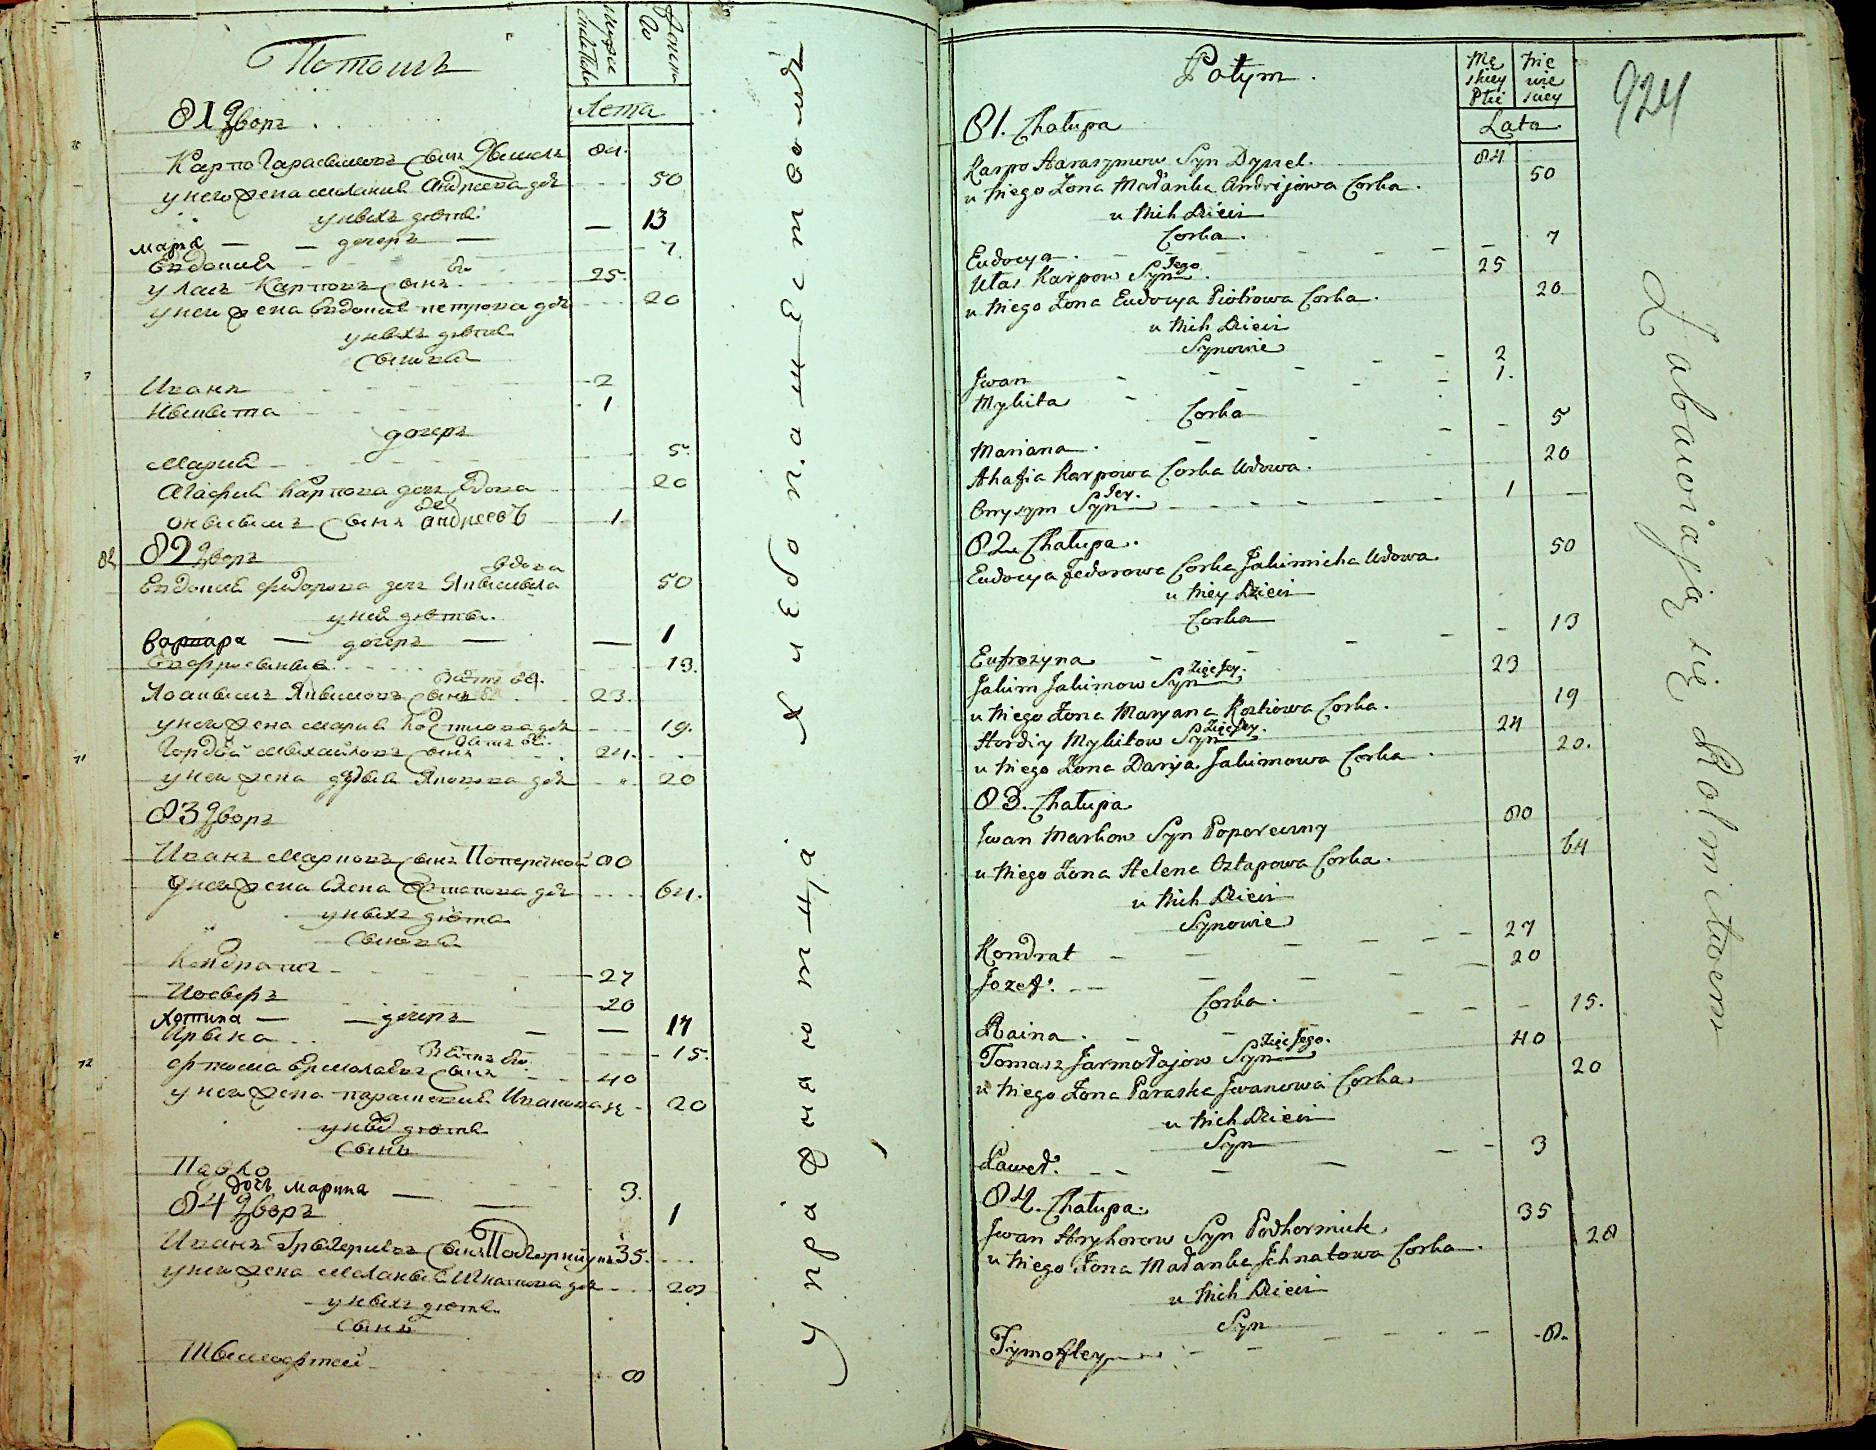 Потомъ
мужеска
женска
Лета
81 Дворъ
Карпо Гарасимовъ сынъ 84.
у него жена Малания Андреева дочь 50
у нихъ дети
мара — дочерь — 13
Евдокия 7.
Уласъ Карповъ сынъ его 25.
у него жена Евдокия Петрова дочь 20
у нихъ дети
сынова
Иванъ 2
Никита 1
дочерь
Мария 5
Агафия Карпова дочь вдова 20
Онисимъ сынъ ее андреевъ 1.
82 Дворъ
Евдокия Федорова дочь Якимиха вдова 50
у ней дети.
варвара — дочерь — 1
Евфросиния 13.
Якимъ Якимовъ сынъ зять ее. 23.
у него жена Мария Костюкова дочь 19.
Гордей Михайловъ сынъ зять ее. 24.
у него жена Дария Якимова дочь 20
83 Дворъ
Иванъ Марковъ сынъ Поперечной 80
у него жена Елена Остапова дочь 64.
у нихъ дети
сынова
Кондратъ 27
Иосифъ 20
дочерь 17
Ирина 15.
Фтома Ермолаевъ сынъ зять его 40
у него жена Парасковия Иванова дочь 20
у нихъ дети
сынъ
Павло 3.
дочь марина — 1
84 Дворъ
Иванъ Григориевъ сынъ 35.
у него жена Малания Игнатова дочь 28
у нихъ дети
сынъ
Тимофтей 8
упражняются хлебопашеством
Potym.
Mę skiey Płci
Nie wie sciey
Lata
924
81. Chałupa
Karpo Haraszymow Syn 84
u niego Zona Małanka Andrijowa Corka. 50
u nich Dzieci
Corka.
Eudocya. 7
Ułas Karpow Syn Jego. 25
u niego Zona Eudocya Piotrowa Corka. 20
u nich Dzieci
Synowie
Jwan 2
Mykita 1.
Corka
Mariana. 5
Ahafia Karpowa Corka Wdowa. 20
Onysym Syn Jey. 1
82. Chałupa.
Eudocya Fedorowa Corka Jakimicha Wdowa 50
u niey Dzieci
Corka
Eufrozyna 13
Jakim Jakimow Syn Zięć Jey. 23
u niego Zona Maryana Kostiowa Corka. 19
Hordiy Mykitow Syn Zięć Jey. 24
u niego Zona Darija Jakimowa Corka 20.
83. Chałupa
Jwan Markow Syn Popereczny 80
u niego Zona Helena Ostapowa Corka. 64
u nich Dzieci
Synowie
Kondrat 27
Jozef. 20
Corka.
Raina. 15.
Tomasz Jarmołajow Syn Zięć Jego. 40
u niego Zona Paraska Jwanowa Corka. 20
u nich Dzieci
Syn
Paweł. 3
84. Chałupa.
Jwan Hryhorow Syn Podhorniuk 35
u niego Zona Małanka Jhnatowa Corka. 28
u nich Dzieci
Syn
Tymoftey 8.
Zabawiają się Rolnictwem